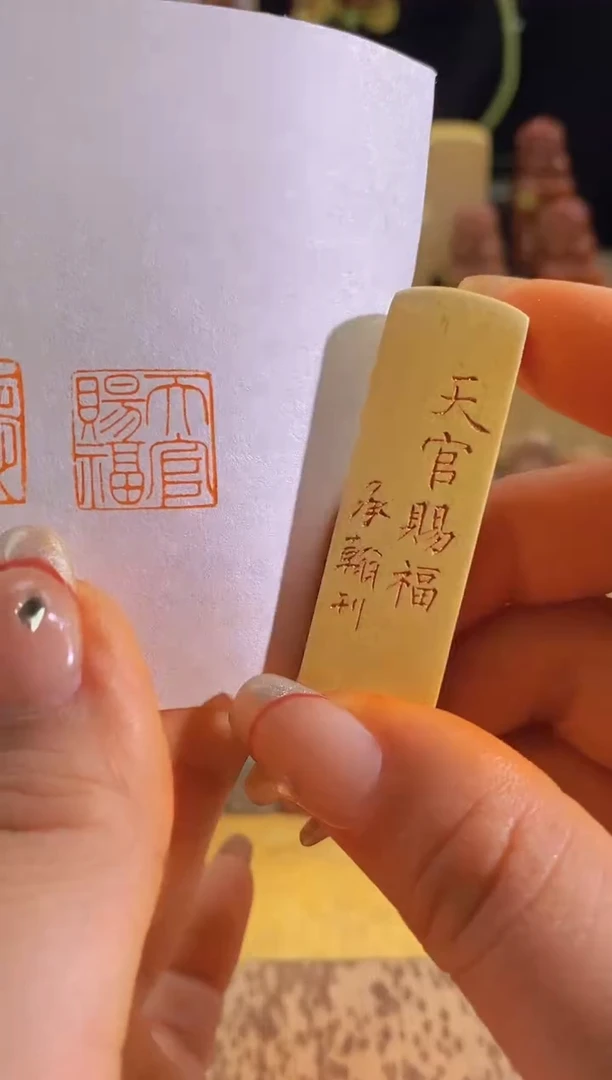 天官
賜福
天官賜福
承翰刊